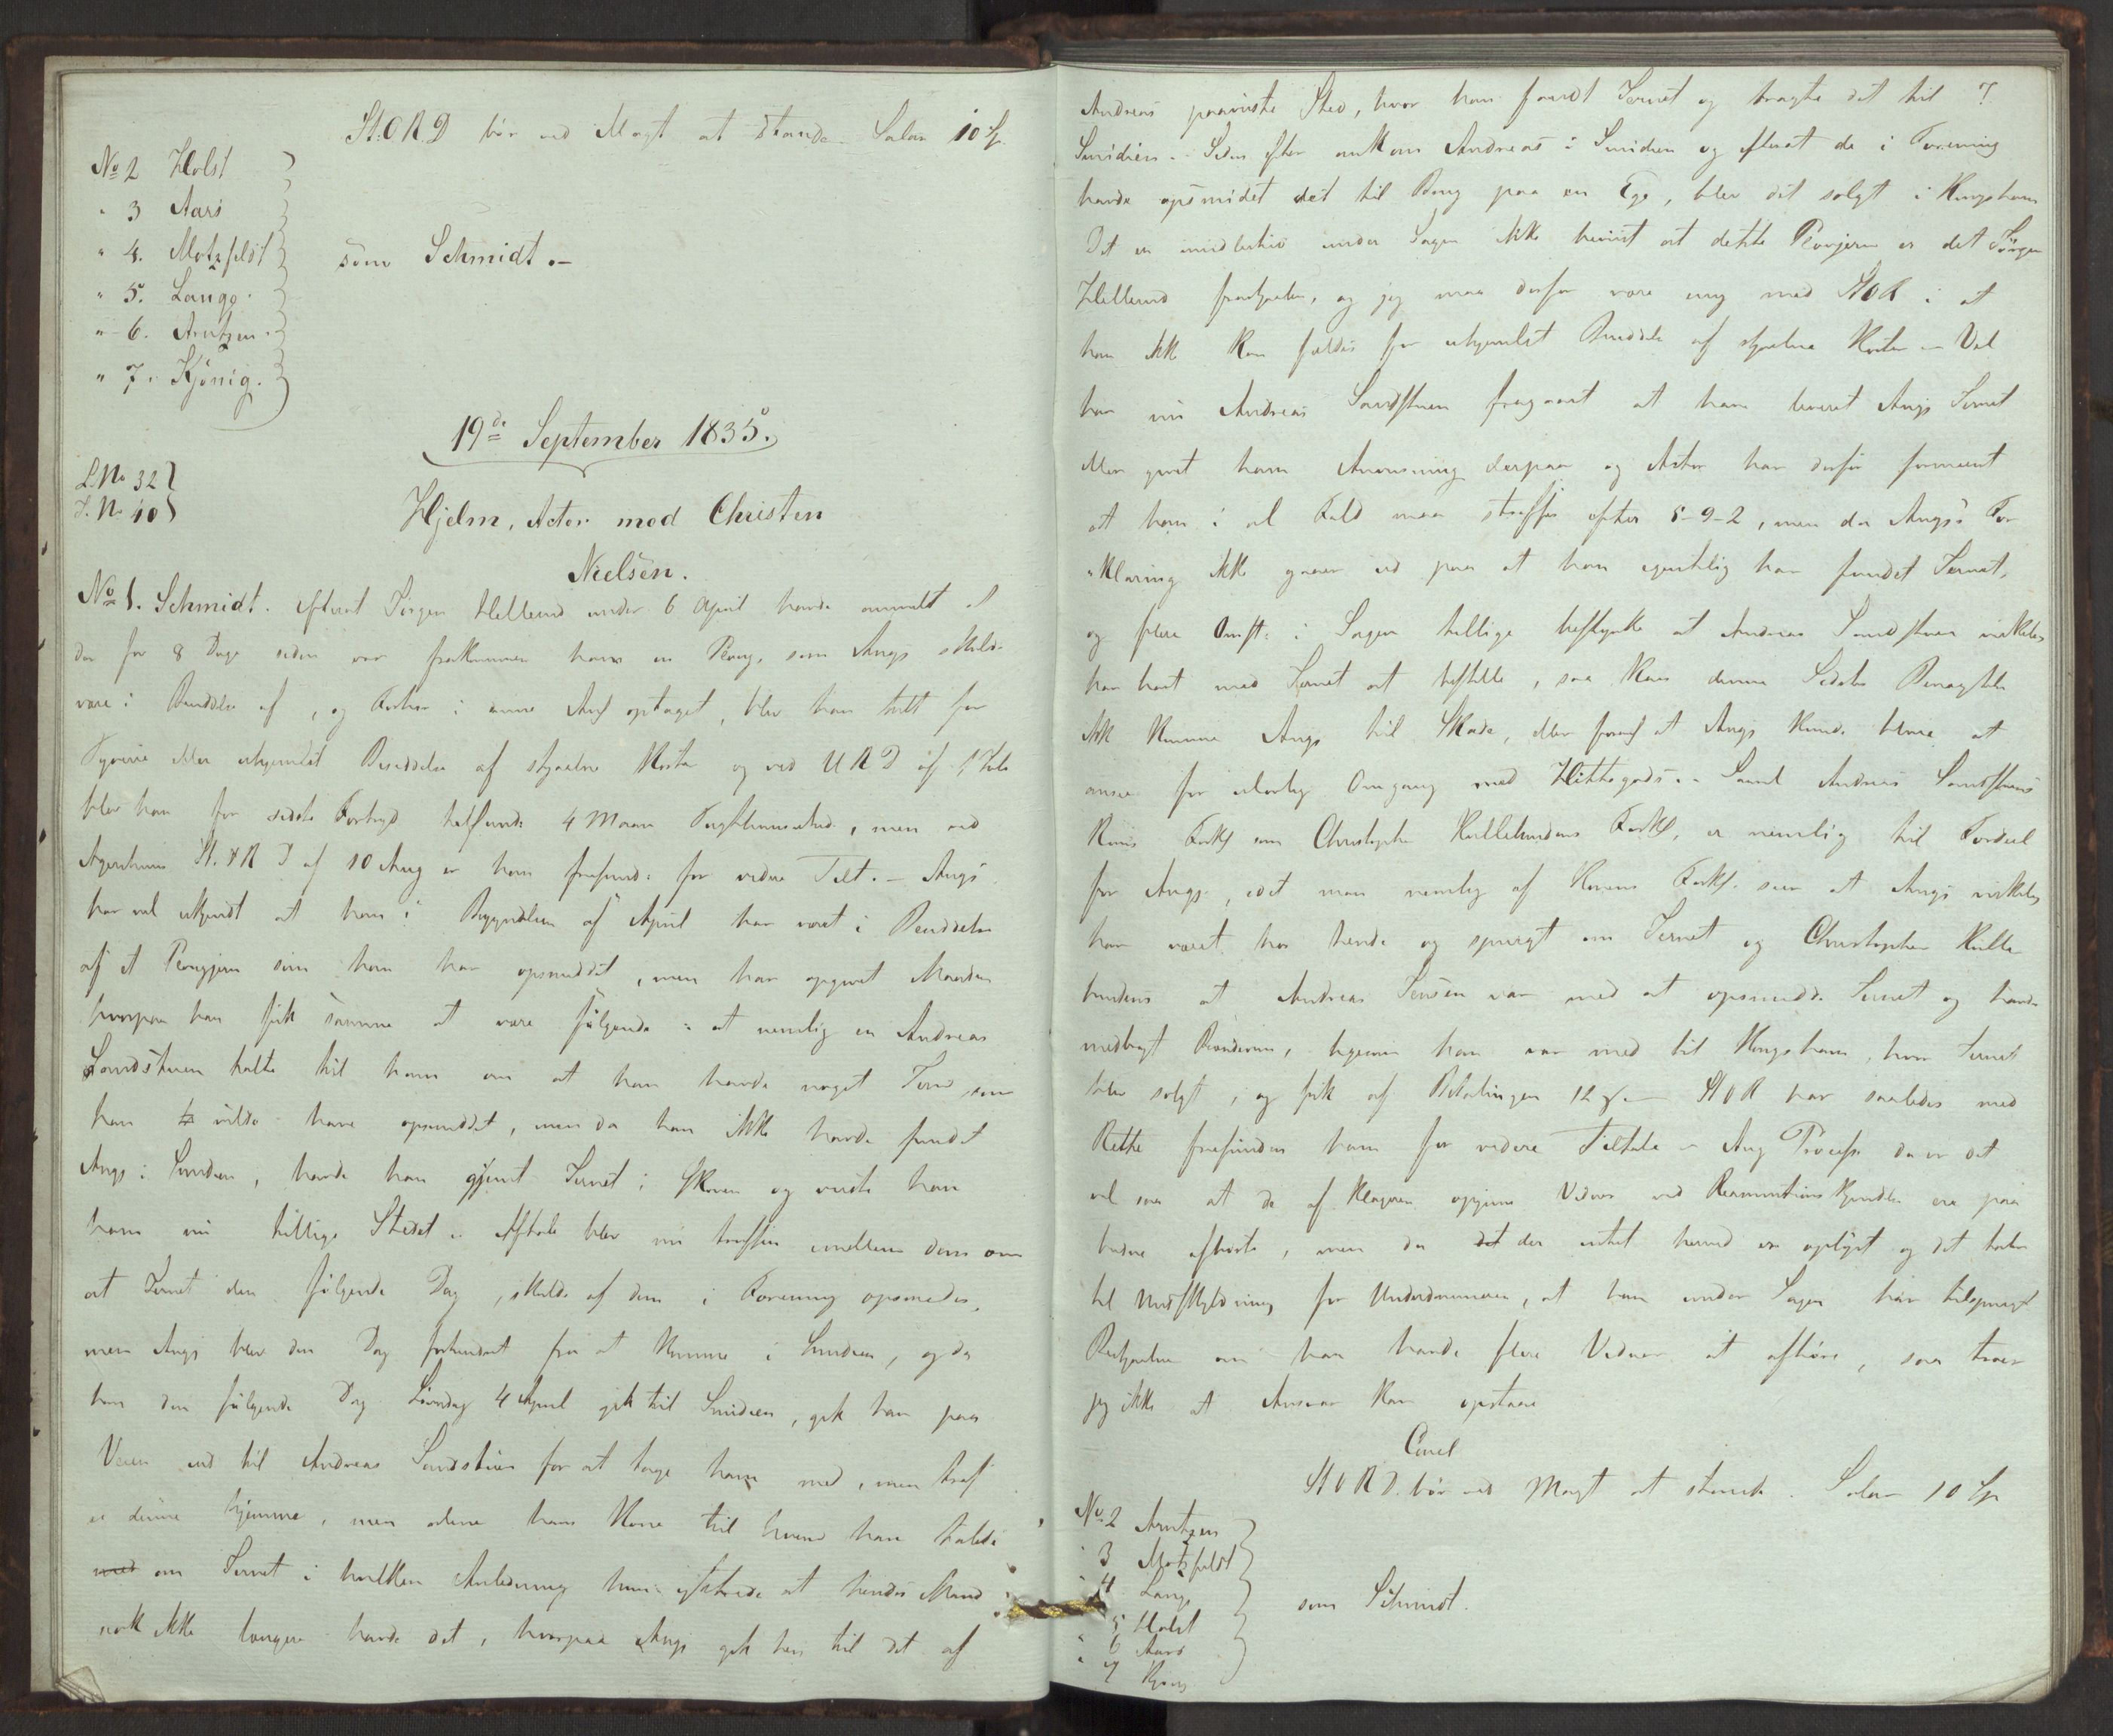 St.O.R.D bør ved Magt at stande. Salar 10 Sp.
No 2 Holst
" 3 Aars
" 4. Motzfeldt
som Schmidt.-
" 5. Lange.
" 6. Arntzen.
" 7. Kjønig.
19de September 1835.
L.No 32
J.No 40
Hjelm, Actor mod Christen
Nielsen.
No 1. Schmidt. Efterat Jørgen Hellerud under 6 April havde anmeldt at
der for 8 Dage siden var frakommen ham en som Angs skulde
være i Besiddelse af, og Forhør i den Anl optaget, blev han tilt for
Tyverie eller uhjemlet Besiddelse af stjaalne Koster og ved U R D af
blev han for sidste Forbryd tilfunde 4 Maan Tugthuusarbeide, men ved
Agershuus St.O R D af 10 Aug er han frifunden for videre Tilt. - Angs
har vel erkjendt at han i Begyndelsen af April har været i Besiddelse
af et som han har opsmeddet, men har opgivet Maaden
hvorpaa han fik samme at være følgende: at nemlig en Andreas
Sandstuen talte til ham om at han havde noget Jern, som
han vilde have opsmeddet, men da han ikke havde fundet
Angs i Smidien, havde han gjemt Jernet i Skoven og viiste han
ham nu tillige Stedet. Aftale blev nu truffen imellem dem om
at Jernet den følgende Dag, skulde af dem i Forening opsmedes,
men Angs blev den Dag forhindret fra at komme i Smidien, og da
han den følgende Dag Løverdag 4 April gik til Smidien, gik han paa
Veien ind til Andreas Sandstuen for at tage ham med, men traf
ei denne hjemme, men alene hans Kone til hvem han talede
med om Jernet i hvilken Anledning hun yttrede at hendes Mand
nok ikke længere havde det, hvorpaa Angs gik hen til det af
Andreas paaviiste Sted, hvor han fandt Jernet og bragte det til
Smidien. - Siden efter ankom Andreas i Smidien og efterat de i Forening
havde opsmidet det til Beslag paa en Ege, blev det solgt i Kongshavn
Det er imidlertid under Sagen ikke beviist at dette er det Jørgen
Hellerud frastjaalne, og jeg maa derfor være enig med StOR i at
han ikke kan fældes for uhjemlet Besiddelse af stjaalne Koster - Vel
har nu Andreas Sandstuen fragaaet at have leveret Angs Jernet
eller givet ham Anviisning derpaa og Actor har derfor formeent
at han i al Fald maa straffes efter 5-9-2, men da Angs's For
-klaring ikke gaaer ud paa at han egentlig har fundet Jernet,
og flere Omst: i Sagen tillige bestyrke at Andreas Sandstuen virkelig
har havt med Jernet at bestille, saa kan dennes Sidstes Benægtelse
ikke komme Angs til Skade, eller foraarsage at Angs kunde blive at
ansee for ulovlig Omgang med Hittegods. - Saavel Andreas Sandstuens
Kones Forkl som Christopher Kullebundens Forkl, er nemlig til Fordeel
for Angs, idet man nemlig af Konens Forkl. seer at Angs virkelig
har været hos hende og spurgt om Jernet og Christopher Kulle
bundens at Andreas Jensen var med at opsmedde Jernet og havde
medbragt, ligesom han var med til Kongshavn, hvor Jernet
blev solgt, og fik af Betalingen 12 s. - StOR har saaledes med
Rette frifunden ham for videre Tiltale - Ang Procesf. da er det
vel saa at de af Klageren opgivne Vidner ved Examinations Kjendelse ere paa
budne afhørte, men da det der intet herved er oplyst og det taler
til Undskyldning for Underdommeren, at han under Sagen har tilspurgt
Bestjaalne om han havde flere Vidner at afhøre, saa troer
jeg ikke at Ansvar kan opstaae
Concl
StORD. bør ved Magt at stande. Salar 10 Sp
No 2 Arntzen
" 3 Motzfeldt
" 4 Lange
som Schmidt.
" 5 Holst
" 6 Aars
" 7 Kjønig